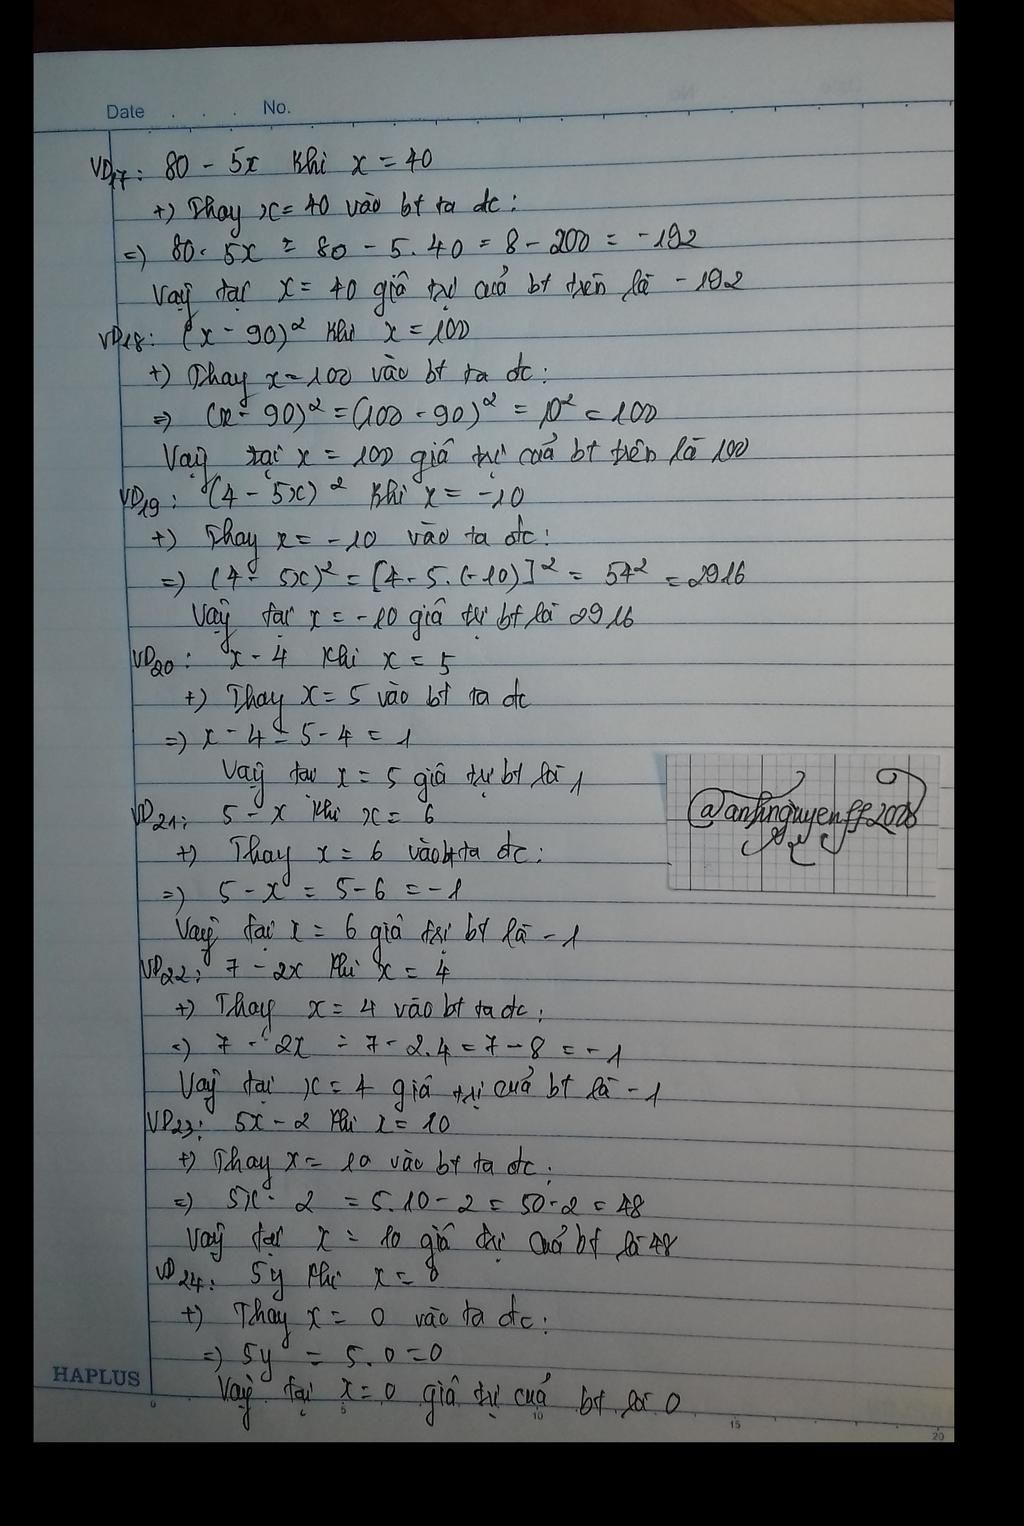 Date . . . . No.
VD17: 80 - 5x khi x = 40
+) Thay x = 40 vào bt ta đc:
=) 80 - 5x = 80 - 5.40 = 8 - 200 = -192
Vậy tại x = 40 giá trị của bt trên là -192
VD18: (x - 90)² khi x = 100
+) Thay x = 100 vào bt ta đc:
=) (x - 90)² = (100 - 90)² = 10² = 100
Vậy tại x = 100 giá trị của bt trên là 100
VD19: (4 - 5x)² khi x = -10
+) Thay x = -10 vào ta đc:
=) (4 - 5x)² = [4 - 5.(-10)]² = 54² = 2916
Vậy tại x = -10 giá trị bt là 2916
VD20: x - 4 khi x = 5
+) Thay x = 5 vào bt ta đc
=) x - 4 = 5 - 4 = 1
Vậy tại x = 5 giá trị bt là 1
VD21: 5 - x khi x = 6
+) Thay x = 6 vào bt ta đc:
=) 5 - x = 5 - 6 = -1
Vậy tại x = 6 giá trị bt là -1
@anhnguyenff2008
VD22: 7 - 2x khi x = 4
+) Thay x = 4 vào bt ta đc:
=) 7 - 2x = 7 - 2.4 = 7 - 8 = -1
Vậy tại x = 4 giá trị của bt là -1
VD23: 5x - 2 khi x = 10
+) Thay x = 10 vào bt ta đc:
=) 5x - 2 = 5.10 - 2 = 50 - 2 = 48
Vậy tại x = 10 giá trị của bt là 48
VD24: 5y khi x = 0
+) Thay x = 0 vào ta đc:
=) 5y = 5.0 = 0
Vậy tại x = 0 giá trị của bt là 0
HAPLUS
0 5 10 15 20